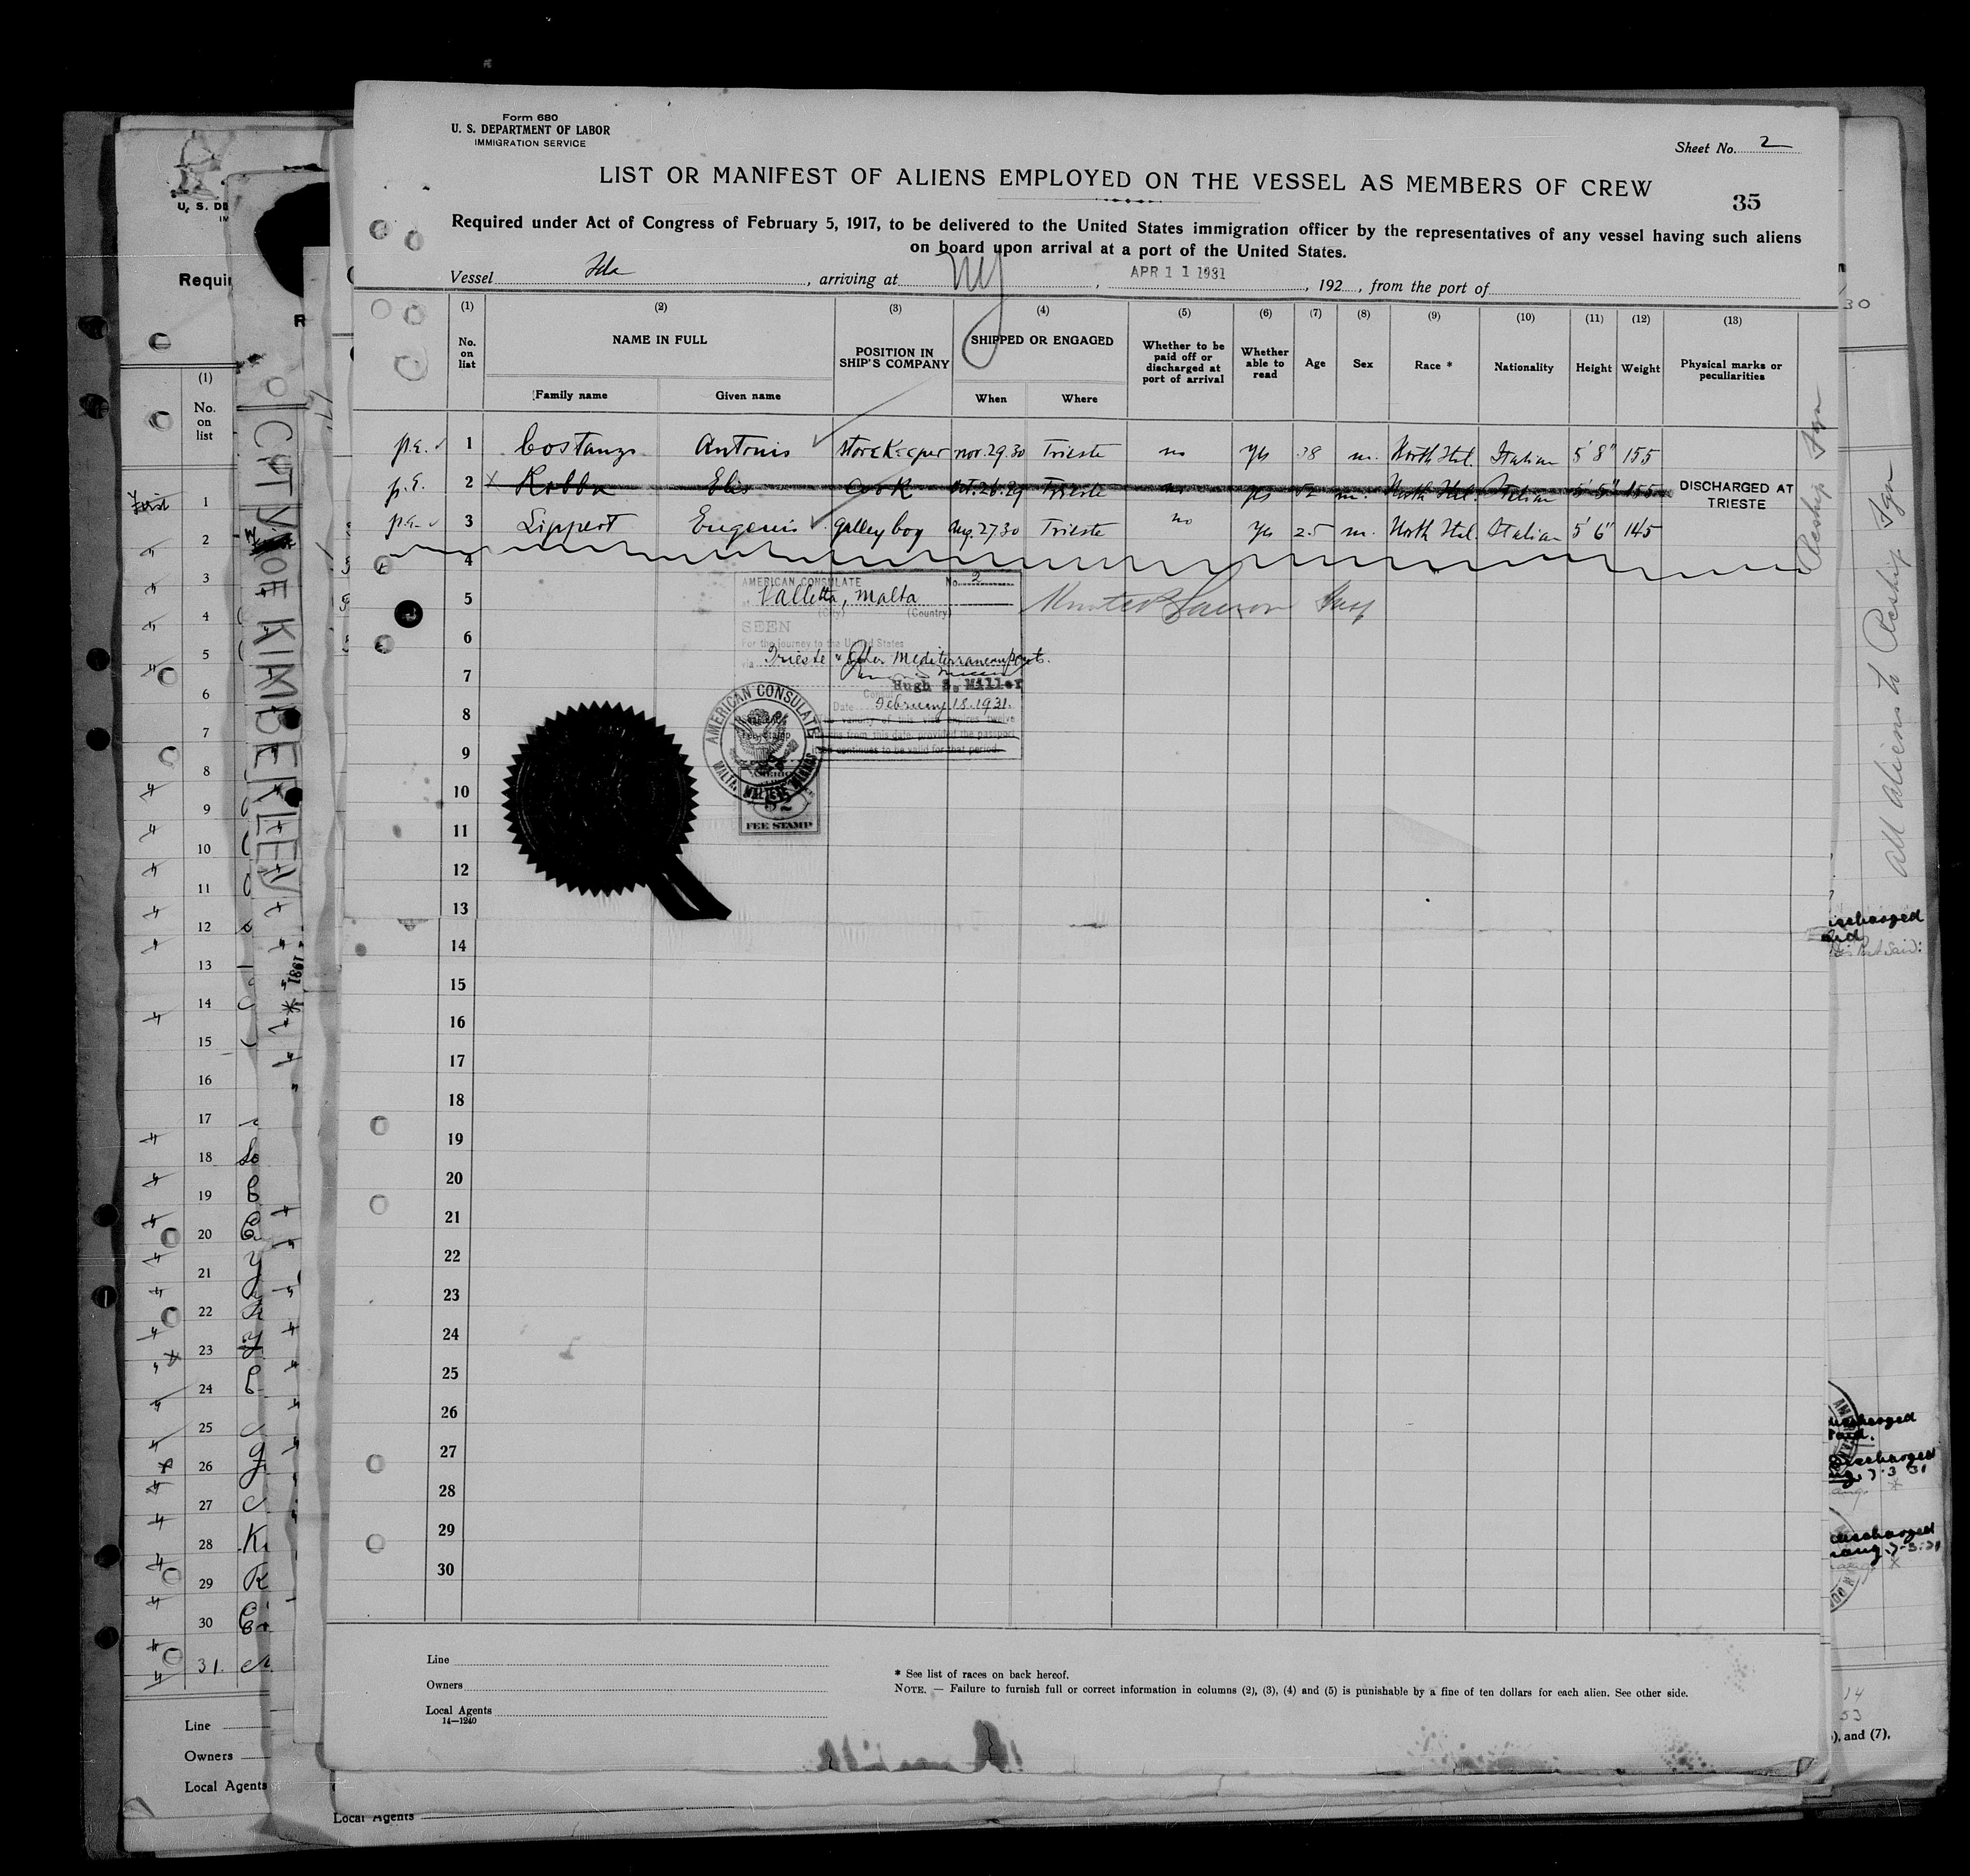 Form 680
U. S. DEPARTMENT OF LABOR
IMMIGRATION SERVICE
Sheet No. 2
LIST OR MANIFEST OF ALIENS EMPLOYED ON THE VESSEL AS MEMBERS OF CREW
35
Required under Act of Congress of February 5, 1917, to be delivered to the United States immigration officer by the representatives of any vessel having such aliens
on board upon arrival at a port of the United States.
Vessel Ida, arriving at NY, APR 11 1931, 192, from the port of
(1) (2) (3) (4) (5) (6) (7) (8) (9) (10) (11) (12) (13)
No. on list NAME IN FULL POSITION IN SHIP'S COMPANY SHIPPED OR ENGAGED Whether to be paid off or discharged at port of arrival Whether able to read Age Sex Race * Nationality Height Weight Physical marks or peculiarities
Family name Given name When Where
p.e. 1 Costanzo Antonio storeKeeper nov. 29.30 Trieste no yes 38 m. North Ital. Italian 5' 8" 155
p.e. 2 X Robba Elio Cook Oct. 26.29 Trieste no yes 52 m. North Ital. Italian 5' 5" 155 DISCHARGED AT TRIESTE
p.e. 3 Lippert Eugenio galley boy Aug. 27.30 Trieste no yes 25 m. North Ital. Italian 5' 6" 145
4
5
6
7
8
9
10
11
12
13
14
15
16
17
18
19
20
21
22
23
24
25
26
27
28
29
30
AMERICAN CONSULATE No. 2
Valletta, Malta
(City) (Country)
SEEN
For the journey to the United States
via Trieste & other Mediterranean ports.
Hugh S. Miller
Consul
Date February 18. 1931.
validity of this visa expires twelve
months from this date, provided the passport
continues to be valid for that period.
AMERICAN CONSULATE
MALTA, MALTESE ISLANDS
$2
FEE STAMP
Reship Fgn
All aliens to Reship Fgn
Line
Owners
Local Agents
14—1240
* See list of races on back hereof.
NOTE. — Failure to furnish full or correct information in columns (2), (3), (4) and (5) is punishable by a fine of ten dollars for each alien. See other side.
U. S. DE
Requir
(1)
No. on list
1
2
3
4
5
6
7
8
9
10
11
12
13
14
15
16
17
18
19
20
21
22
23
24
25
26
27
28
29
30
31.
Line
Owners
Local Agents
CITY OF KIMBERLEY
1931
Local Agents
discharged
discharged
discharged
discharged
), and (7),